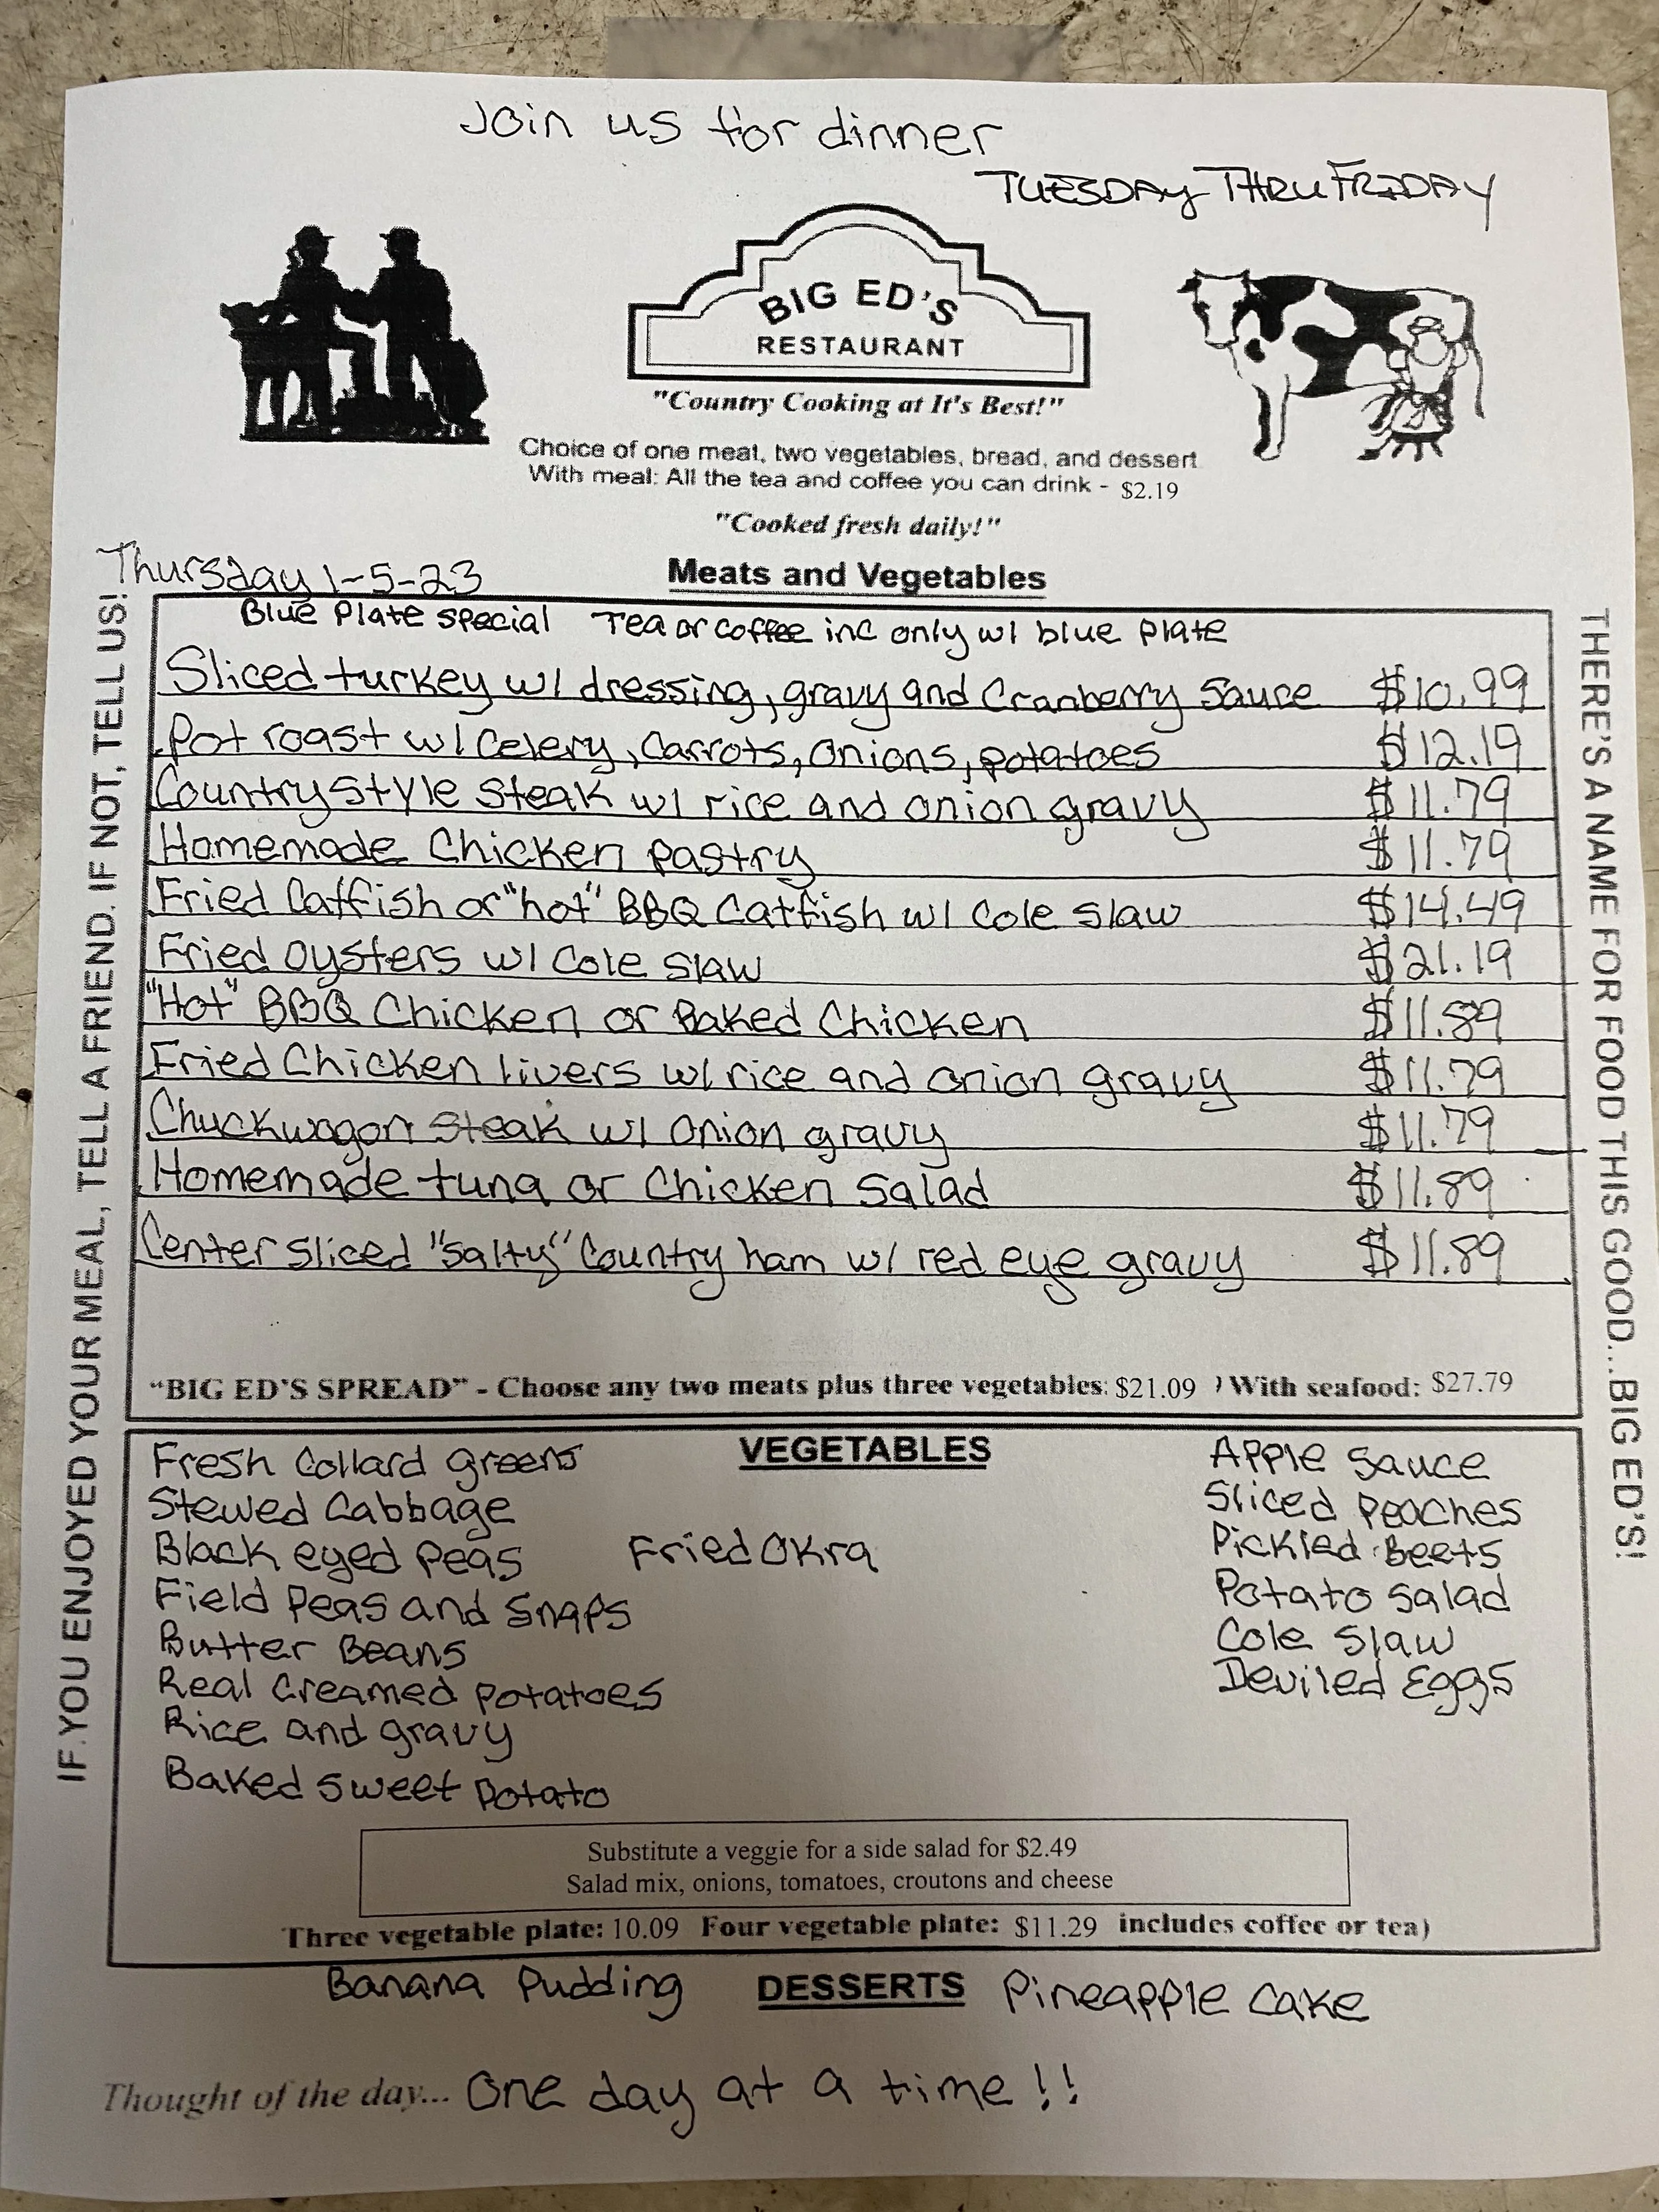 Join us for dinner
TUESDAY THRU FRIDAY
BIG ED'S
RESTAURANT
"Country Cooking at It's Best!"
Choice of one meat, two vegetables, bread, and dessert
With meal: All the tea and coffee you can drink - $2.19
"Cooked fresh daily!"
Thursday 1-5-23
Meats and Vegetables
Blue Plate special Tea or coffee inc only w/ blue plate
Sliced turkey w/ dressing, gravy and Cranberry Sauce $10.99
Pot roast w/ Celery, Carrots, Onions, potatoes $12.19
Country Style Steak w/ rice and onion gravy $11.79
Homemade Chicken pastry $11.79
Fried Catfish or "hot" BBQ Catfish w/ Cole Slaw $14.49
Fried oysters w/ Cole Slaw $21.19
"Hot" BBQ Chicken or Baked Chicken $11.89
Fried Chicken livers w/ rice and onion gravy $11.79
Chuckwagon Steak w/ Onion gravy $11.79
Homemade tuna or Chicken Salad $11.89
Center Sliced "Salty" Country ham w/ red eye gravy $11.89
"BIG ED'S SPREAD" - Choose any two meats plus three vegetables: $21.09 ) With seafood: $27.79
IF YOU ENJOYED YOUR MEAL, TELL A FRIEND. IF NOT, TELL US!
THERE'S A NAME FOR FOOD THIS GOOD...BIG ED'S!
VEGETABLES
Fresh Collard greens
Stewed Cabbage
Black eyed Peas
Field Peas and Snaps
Butter Beans
Real Creamed potatoes
Rice and gravy
Baked Sweet Potato
Fried Okra
Apple Sauce
Sliced Peaches
Pickled Beets
Potato Salad
Cole Slaw
Deviled Eggs
Substitute a veggie for a side salad for $2.49
Salad mix, onions, tomatoes, croutons and cheese
Three vegetable plate: 10.09 Four vegetable plate: $11.29 includes coffee or tea)
Banana Pudding DESSERTS Pineapple Cake
Thought of the day... One day at a time!!